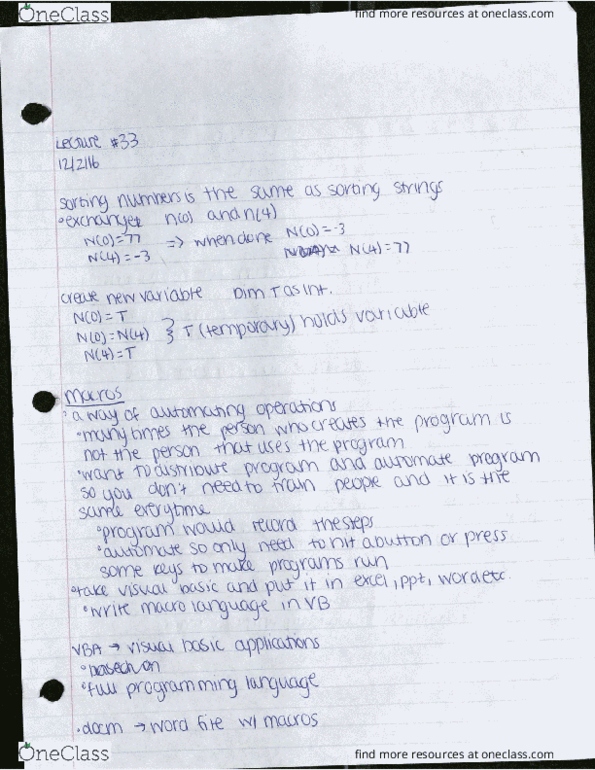 OneClass
find more resources at oneclass.com
Lecture #33
12/2/16
sorting numbers is the same as sorting strings
exchanges n(0) and n(4)
N(0)=77 => when done N(0)=-3
N(4)=-3 N(4)=77
create new variable Dim T as Int.
N(0)=T
N(0)=N(4) } T (temporary) holds variable
N(4)=T
Macros
a way of automating operations
many times the person who creates the program is
not the person that uses the program
want to distribute program and automate program
so you don't need to train people and it is the
same everytime
program would record the steps
automate so only need to hit a button or press
some keys to make programs run
take visual basic and put it in excel, ppt, word etc.
write macro language in VB
VBA → visual basic applications
based on
full programming language
.docm → word file w/ macros
OneClass
find more resources at oneclass.com